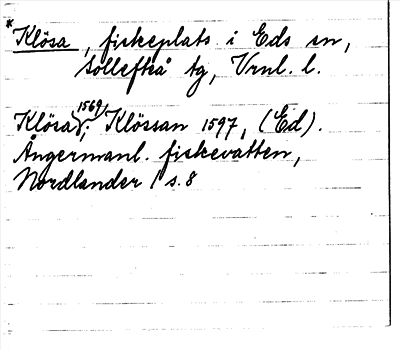 *Klösa, fiskeplats i Eds sn,
Sollefteå tg, Vrnl. l.
Klösa 1569; Klössan 1597, (Ed).
Ångermanl. fiskevatten,
Nordlander 1 s. 8